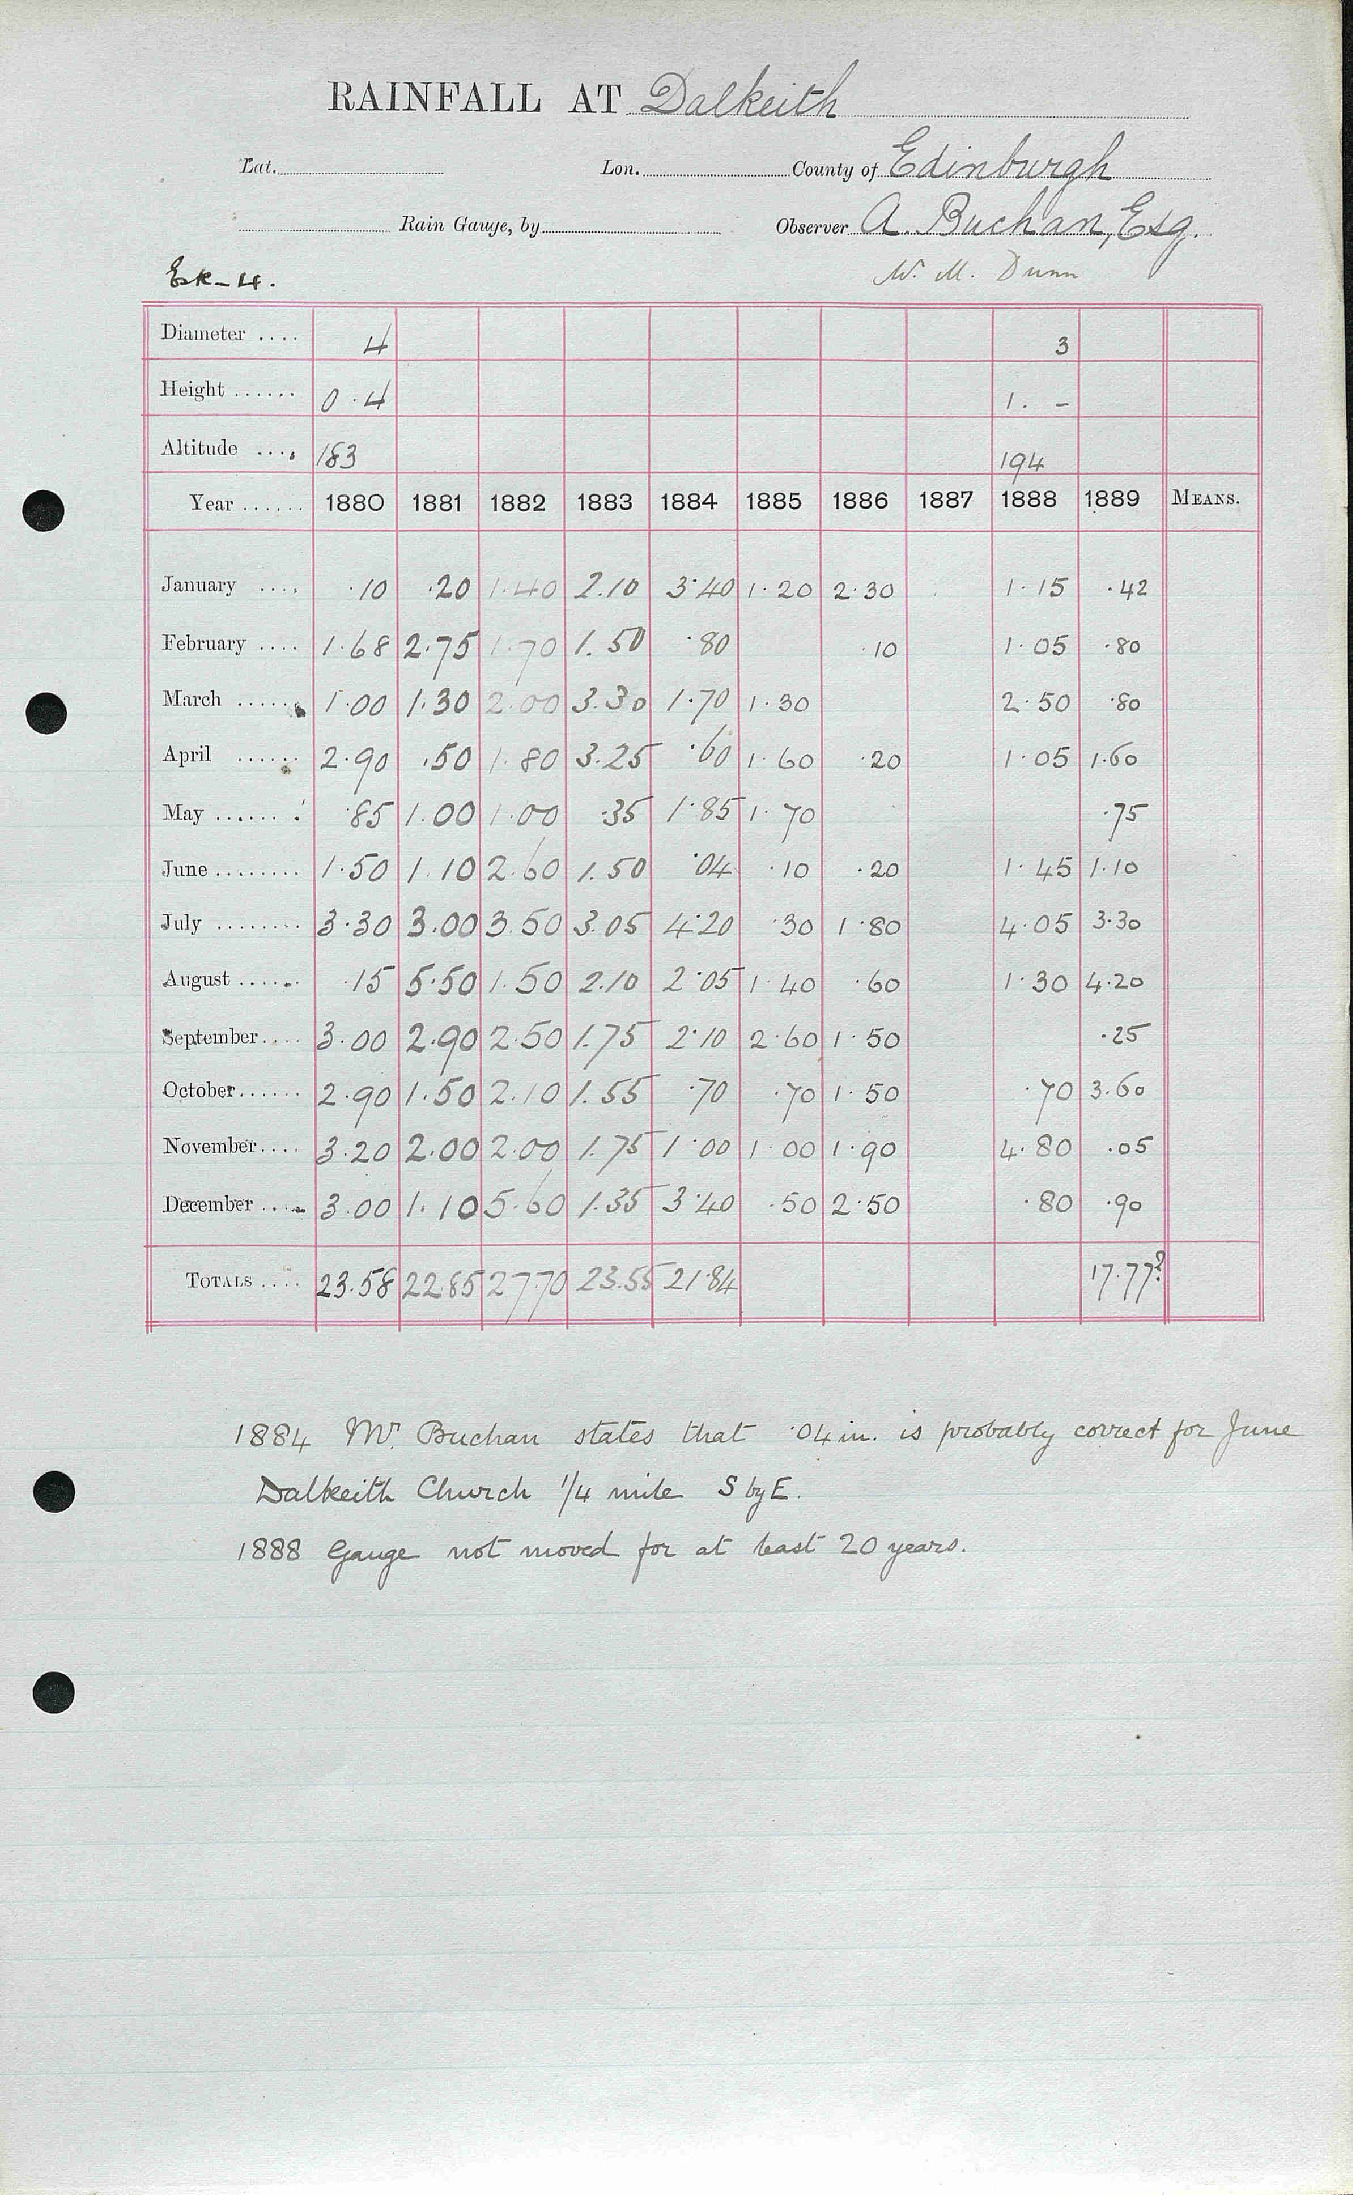 RAINFALL AT Dalkeith
Lat. Lon. County of Edinburgh
Rain Gauge, by Observer A. Buchan, Esq.
Ek-4. W. M. Dunn
Diameter .... 4 3
Height ...... 0.4 1. -
Altitude .... 183 194
Year ...... 1880 1881 1882 1883 1884 1885 1886 1887 1888 1889 MEANS.
January .... .10 .20 1.40 2.10 3.40 1.20 2.30 1.15 .42
February .... 1.68 2.75 1.70 1.50 .80 .10 1.05 .80
March ...... 1.00 1.30 2.00 3.30 1.70 1.30 2.50 .80
April ...... 2.90 .50 1.80 3.25 .60 1.60 .20 1.05 1.60
May ...... .85 1.00 1.00 .35 1.85 1.70 .75
June ........ 1.50 1.10 2.60 1.50 .04 .10 .20 1.45 1.10
July ........ 3.30 3.00 3.50 3.05 4.20 .30 1.80 4.05 3.30
August ...... .15 5.50 1.50 2.10 2.05 1.40 .60 1.30 4.20
September .... 3.00 2.90 2.50 1.75 2.10 2.60 1.50 .25
October ...... 2.90 1.50 2.10 1.55 .70 .70 1.50 .70 3.60
November .... 3.20 2.00 2.00 1.75 1.00 1.00 1.90 4.80 .05
December .... 3.00 1.10 5.60 1.35 3.40 .50 2.50 .80 .90
TOTALS .... 23.58 22.85 27.70 23.55 21.84 17.77?
1884 Mr. Buchan states that .04 in. is probably correct for June
Dalkeith Church 1/4 mile S by E.
1888 Gauge not moved for at least 20 years.